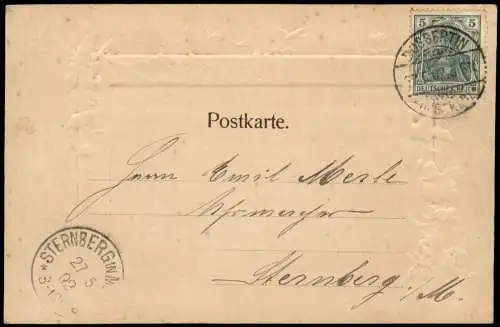 5 5
DEUTSCHES REICH
Postkarte.
Herrn Emil Merle
Uhrmacher
Sternberg i/M.
* STERNBERG IN M.
27 5
02